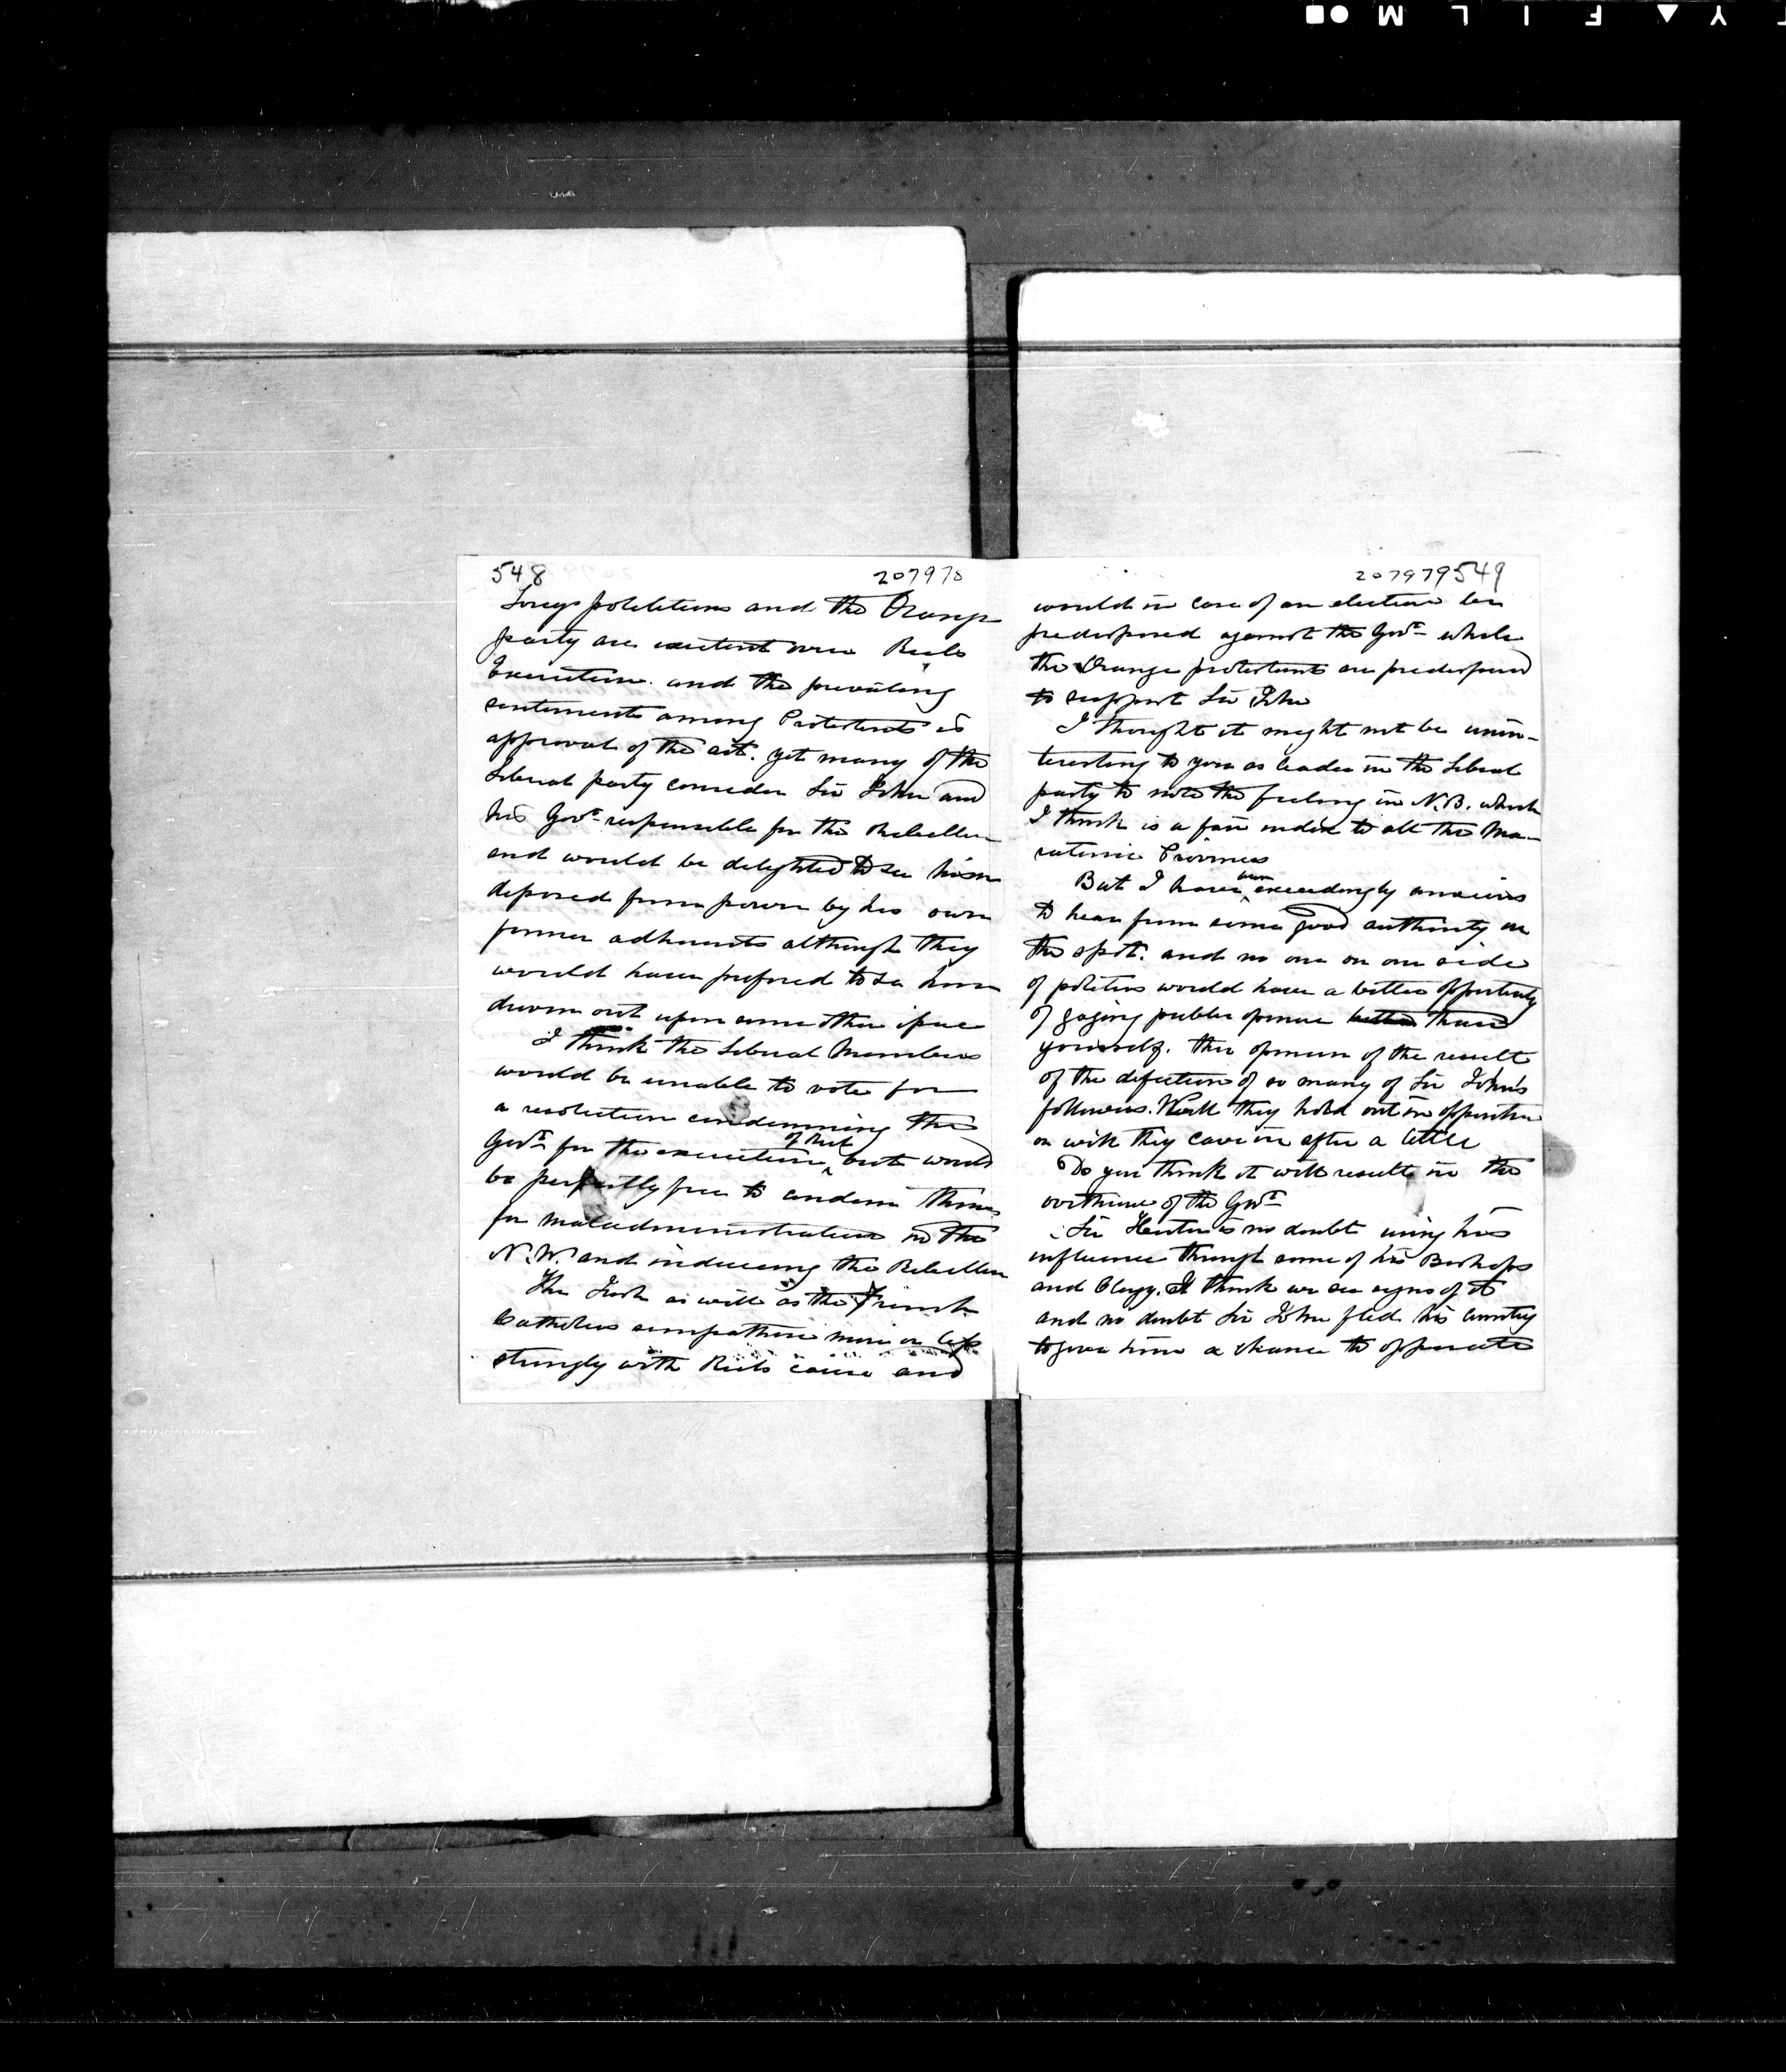 548 207978
Torys politicians and the Orange
party are exultent over Riels
Execution. and the prevailing
sentiments among Protestants is
approval of the act. yet many of the
Liberal party consider Sir John and
his Govt. responsible for the Rebellion
and would be delighted to see him
deposed from power by his own
former adherents although they
would have prefered to see him
driven out upon some other issue
I think the Liberal Members
would be unable to vote for
a resolution condemning the
Govt. for the execution of Riel but would
be perfectly free to condem them
for maladministration in the
N.W. and inducing the Rebellion
The Irish as will as the French
Catholics simpathise more or less
strongly with Riels cause and
207979 549
would in case of an election be
predisposed against the Govt. while
the Orange protestants are predisposed
to support Sir John
I thought it might not be unin-
teresting to you as leader in the Liberal
party to note the feeling in N.B. which
I think is a fair index to all the Ma-
ratime Provinces
But I have been exceedingly anxious
to hear from some good authority on
the spot. and no one on our side
of politics would have a better oppertunity
of gajing public opinion better than
yourself. the opinion of the result
of the defection of so many of Sir John's
followers. Will they hold out in opposition
or will they cave in after a little
Do you think it will result in the
overthrow of the Govt.
Sir Hector is no doubt using his
influence through some of his Bishops
and Clergy. I think we see signs of it
and no doubt Sir John fled his country
to give him a chance to opperate